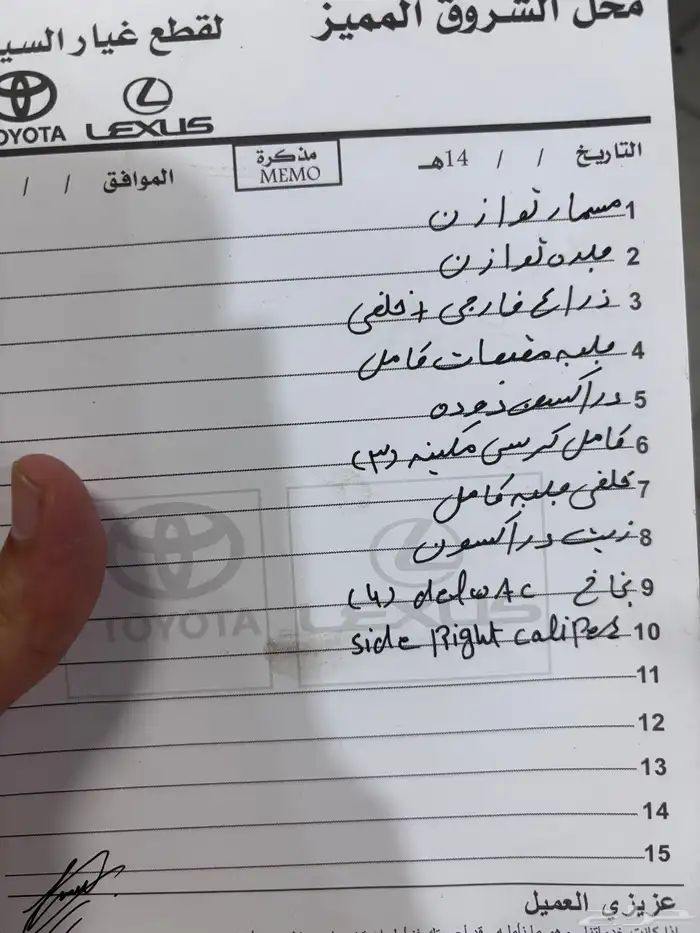 محل الشروق المميز
لقطع غيار السي
TOYOTA LEXUS
التاريخ / / 14هـ
مذكرة
MEMO
الموافق / /
1 مسمار توازن
2 جلده توازن
3 ذراع خارجي + خلفي
4 جلبه مقصات كامل
5 دركسون دوده
6 كامل كرسي مكينه (٣)
7 خلفي جلبه كامل
8 زيت دركسون
9 بخاخ delwAc (4)
10 side Right caliper
TOYOTA LEXUS
11
12
13
14
15
عزيزي العميل